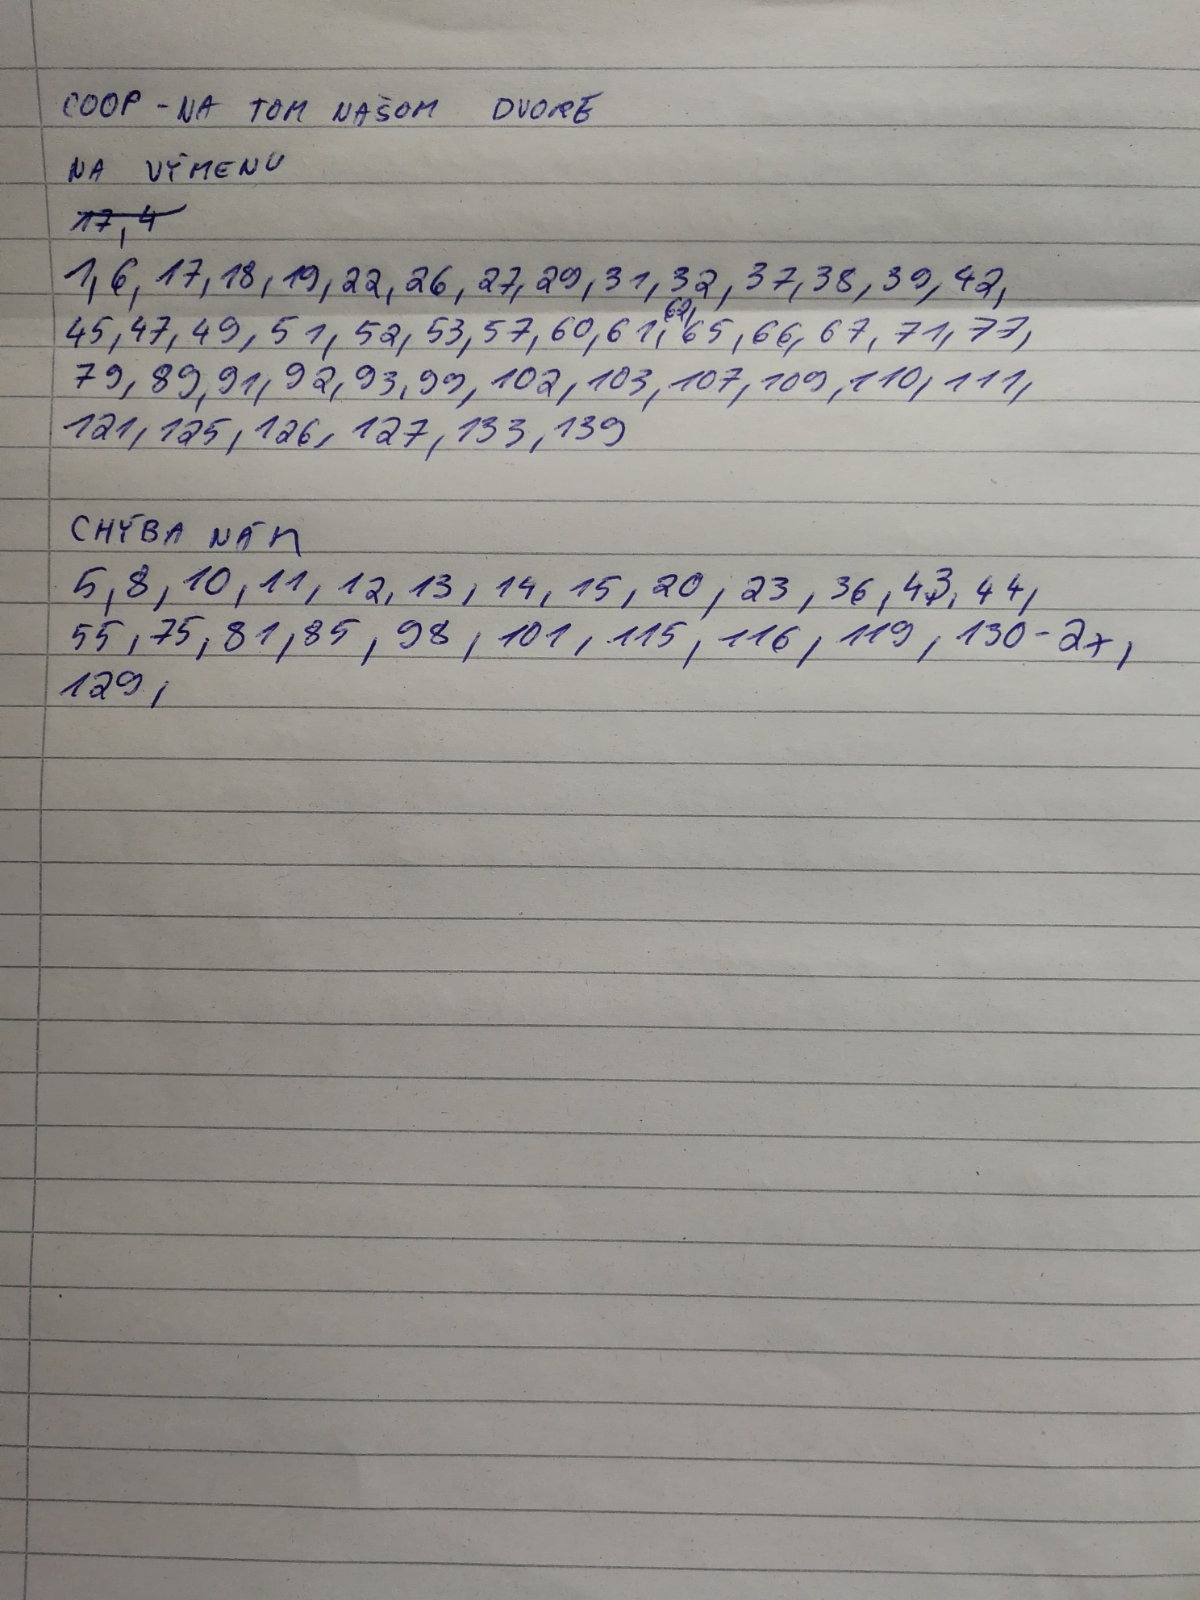 COOP - NA TOM NAŠOM DVORE
NA VÝMENU
17, 4
1, 6, 17, 18, 19, 22, 26, 27, 29, 31, 32, 37, 38, 39, 42,
45, 47, 49, 51, 52, 53, 57, 60, 61, 62, 65, 66, 67, 71, 77,
79, 89, 91, 92, 93, 99, 102, 103, 107, 109, 110, 111,
121, 125, 126, 127, 133, 139
CHÝBA NÁM
5, 8, 10, 11, 12, 13, 14, 15, 20, 23, 36, 43, 44,
55, 75, 81, 85, 98, 101, 115, 116, 119, 130 - 2x,
129,